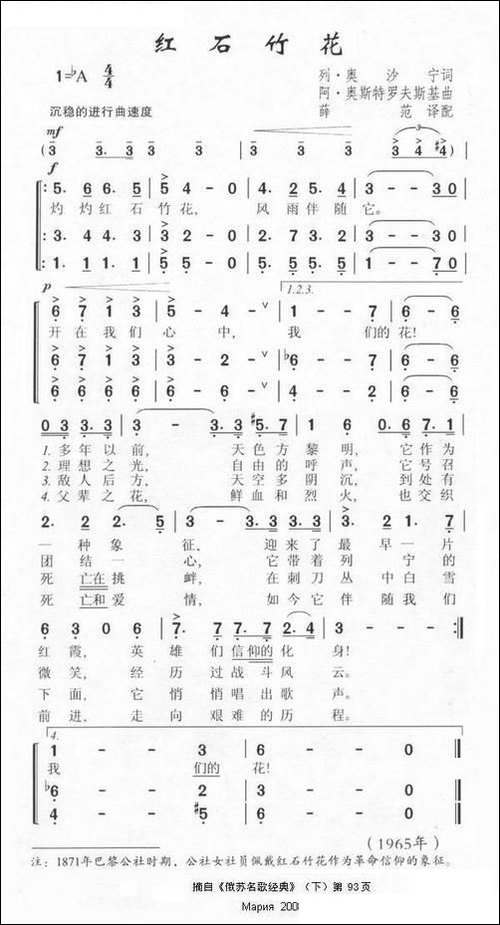 红石竹花
1=♭A 4/4
列·奥沙宁词
阿·奥斯特罗夫斯基曲
薛范译配
沉稳的进行曲速度
mf
( 3 3. 3 3 3 | 3 3 3 4 #4 ) |
f
5. 6 6. 5 | 5 4 - 0 | 4. 2 5. 4 | 3 - - 3 0 |
灼灼红石竹花, 风雨伴随它。
3. 4 4. 3 | 3 2 - 0 | 2. 7 3. 2 | 3 - - 3 0 |
1. 1 1. 1 | 5 5 - 0 | 5. 5 5. 5 | 1 - - 7 0 |
p 1.2.3.
6 7 1 3 | 5 - 4 - ∨ | 1 - - 7 | 6 - - 6 |
开在我们心中, 我们的花!
6 7 1 3 | 3 - 2 - ∨ | ♭6 - - 7 | 6 - - 6 |
6 6 6 6 | 6 - 6 - ∨ | 4 - - 2 | 6 - - 6 |
0 3 3. 3 | 3 - - 3. 3 | 3. 3 #5. 7 | 1 6 0. 6 7. 1 |
1. 多年以前, 天色方黎明, 它作为
2. 理想之光, 自由的呼声, 它号召
3. 敌人后方, 天空多阴沉, 到处有
4. 父辈之花, 鲜血和烈火, 也交织
2. 2. 2. 5 | 3 - - 3. 3 | 3. 3 3. 3 | 3. 2 1. 7 |
一种象征, 迎来了最早一片
团结一心, 它带着列宁的
死亡在挑衅, 在刺刀丛中白雪
死亡和爱情, 如今它伴随我们
6 3 0 6 | 7. 7. 7. 7 | 7. 6 7. 5 2. 4 | 3 - - - :‖
红霞, 英雄们信仰的化身!
微笑, 经历过战斗风云。
下面, 它悄悄唱出歌声。
前进, 走向艰难的历程。
4.
1 - - 3 | 6 - - 0 ‖
我们的花!
♭6 - - 2 | 3 - - 0 ‖
4 - - #5 | 6 - - 0 ‖
(1965年)
注:1871年巴黎公社时期,公社女社员佩戴红石竹花作为革命信仰的象征。
摘自《俄苏名歌经典》(下)第93页
Мария 200